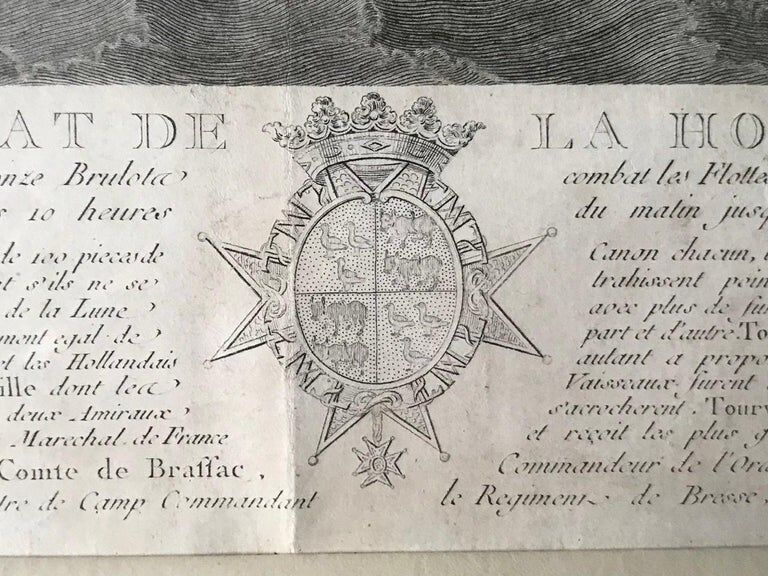 AT DE LA HO
onze Brulots combat les Flotte
s 10 heures du matin jusq
de 100 pieces de Canon chacun,
et s'ils ne se trahissent poin
de la Lune avec plus de fu
ment egal de part et d'autre. To
et les Hollandais autant a propo
ille dont les Vaisseaux furent
deux Amiraux s'acrocherent. Tourv
Marechal de France et reçoit les plus g
Comte de Braſſac, Commandeur de l'Ord
tre de Camp Commandant le Regiment de Bresse